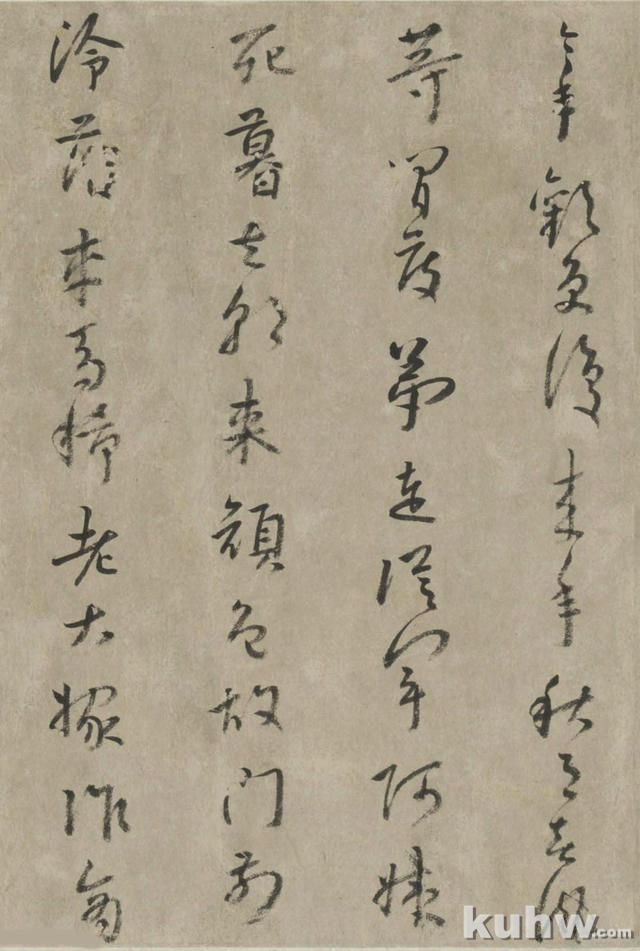 今年歡復来年秋月春風
等閒度弟走從軍阿姨
死暮去朝來顔色故門前
冷落車馬稀老大嫁作商
kuhw.com